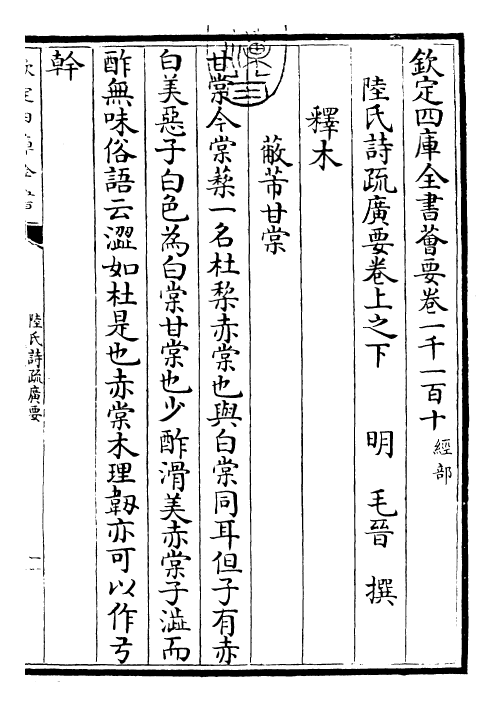 欽定四庫全書薈要卷一千一百十 經部
陸氏詩疏廣要卷上之下 明 毛晉 撰
釋木
蔽芾甘棠
甘棠今棠棃一名杜棃赤棠也與白棠同耳但子有赤
白美惡子白色為白棠甘棠也少酢滑美赤棠子澁而
酢無味俗語云澀如杜是也赤棠木理韌亦可以作弓
幹
陸氏詩疏廣要
一